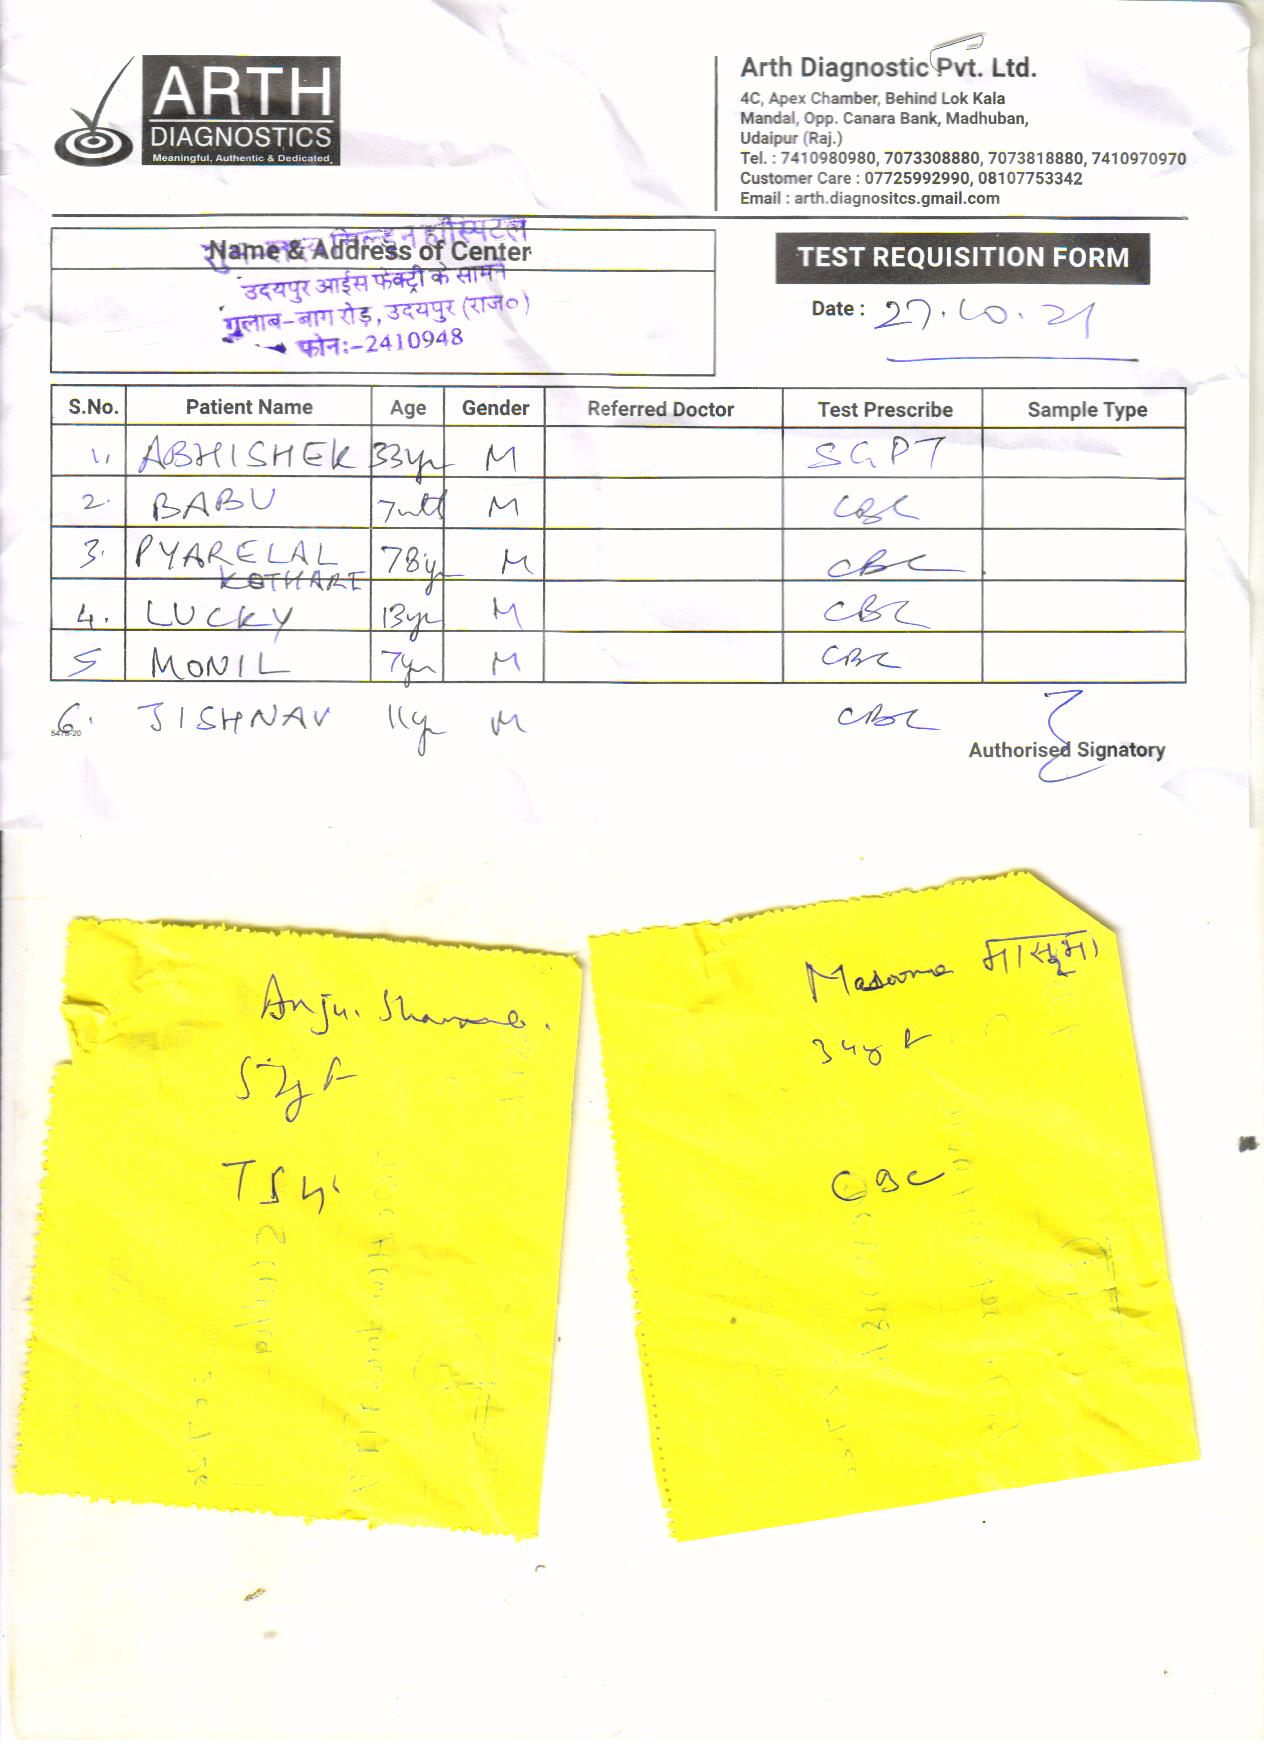 ARTH
DIAGNOSTICS
Meaningful, Authentic & Dedicated.
Arth Diagnostic Pvt. Ltd.
4C, Apex Chamber, Behind Lok Kala
Mandal, Opp. Canara Bank, Madhuban,
Udaipur (Raj.)
Tel. : 7410980980, 7073308880, 7073818880, 7410970970
Customer Care : 07725992990, 08107753342
Email : arth.diagnositcs.gmail.com
Name & Address of Center
हॉस्पिटल
उदयपुर आईस फेक्ट्री के सामने
गुलाब-बाग रोड़, उदयपुर (राज०)
फोन:-2410948
TEST REQUISITION FORM
Date : 27.10.21
S.No. Patient Name Age Gender Referred Doctor Test Prescribe Sample Type
1. ABHISHEK 33yr M SGPT
2. BABU M CBC
3. PYARELAL 78yr M CBC
KOTHARI
4. LUCKY 13yr M CBC
5 MONIL 7yr M CBC
6. JISHNAV 11yr M CBC
5476-20
Authorised Signatory
Anju. Sharma.
Masooma मासूमा
CBC